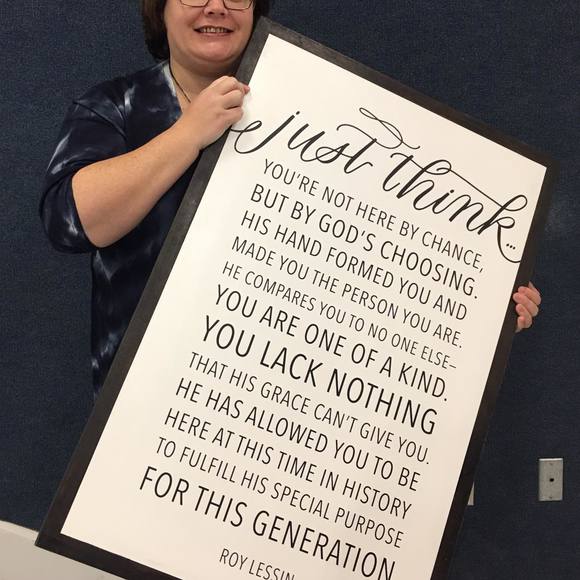 just think...
YOU'RE NOT HERE BY CHANCE,
BUT BY GOD'S CHOOSING.
HIS HAND FORMED YOU AND
MADE YOU THE PERSON YOU ARE.
HE COMPARES YOU TO NO ONE ELSE–
YOU ARE ONE OF A KIND.
YOU LACK NOTHING
THAT HIS GRACE CAN'T GIVE YOU.
HE HAS ALLOWED YOU TO BE
HERE AT THIS TIME IN HISTORY
TO FULFILL HIS SPECIAL PURPOSE
FOR THIS GENERATION
ROY LESSIN